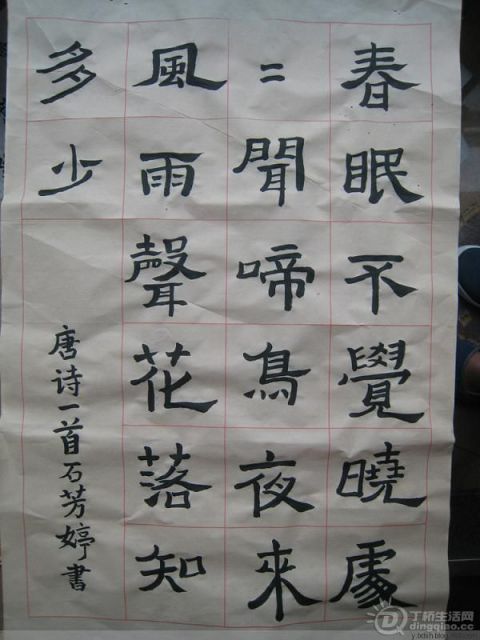 春眠不覺曉處
=聞啼鳥夜來
風雨聲花落知
多少
唐诗一首石芳婷書
丁桥生活网
dingqiao.cc